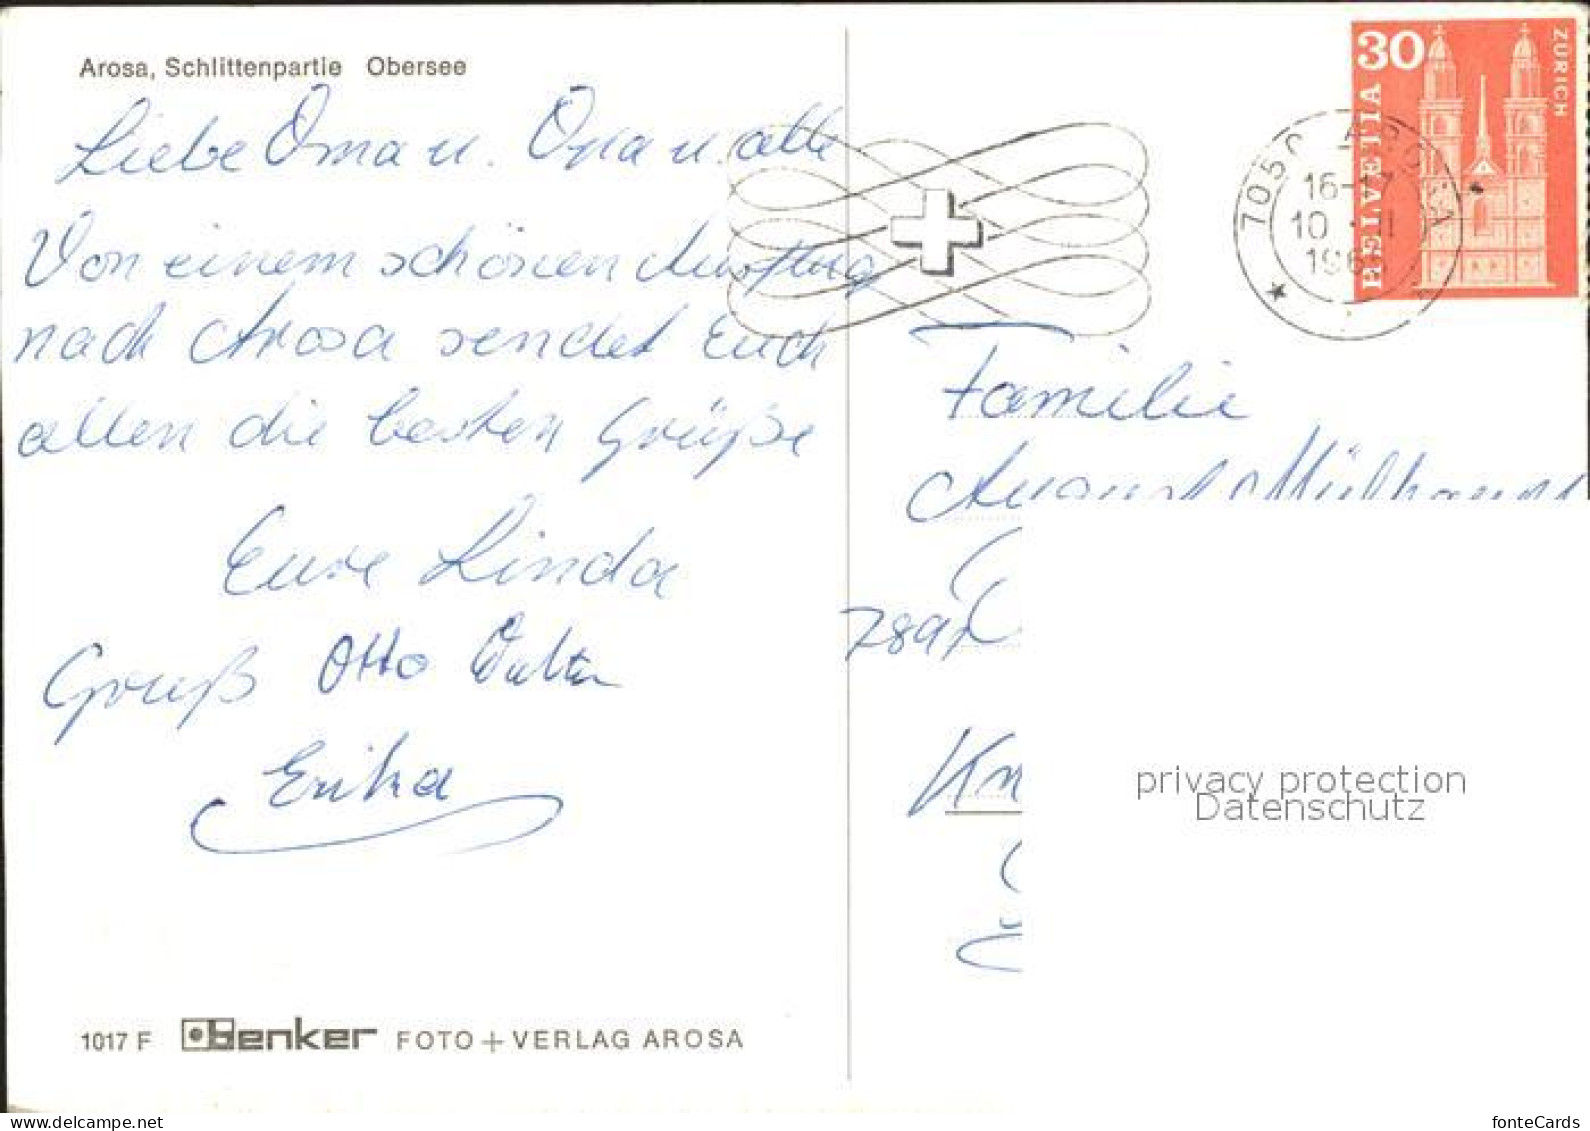 Arosa, Schlittenpartie Obersee
Liebe Oma u. Opa u. alle
Von einem schönen Ausflug
nach Arosa sendet Euch
allen die besten Grüße
Eure Linda
Gruß Otto Walter
Erika
1017 F benker FOTO + VERLAG AROSA
30
HELVETIA
ZÜRICH
7050 AROSA
16-17
10
Familie
August
privacy protection
Datenschutz
www.delcampe.net
fonteCards